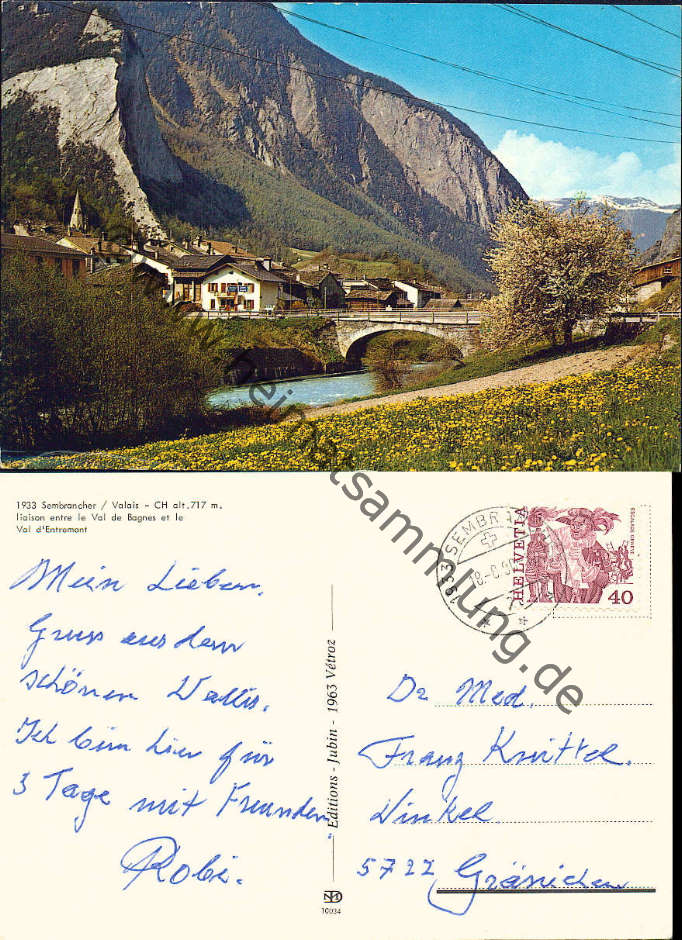 heimatsammlung.de
1933 Sembrancher / Valais - CH alt. 717 m.
liaison entre le Val de Bagnes et le
Val d'Entremont
1933 SEMBRAN
HELVETIA
ESCALADE GENÈVE
40
Mein Lieben,
Gruss aus dem
schönen Wallis.
Ich bin hier für
3 Tage mit Freunden.
Robi.
Editions - Jubin - 1963 Vétroz
10034
Dr Med.
Franz Knittel.
Winkel
5722 Gränichen